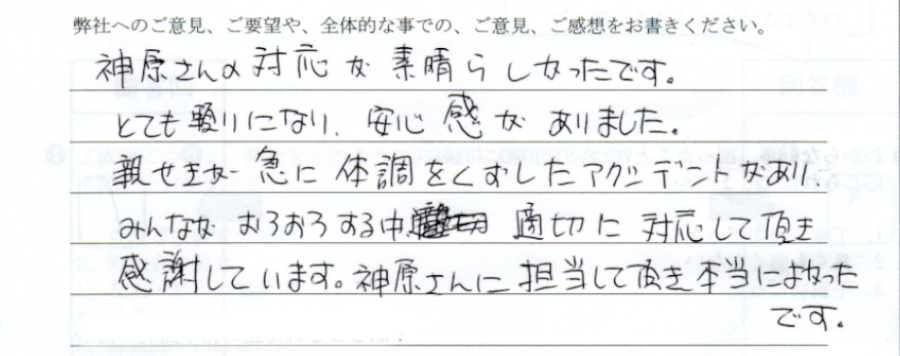 弊社へのご意見、ご要望や、全体的な事での、ご意見、ご感想をお書きください。
神原さんの対応が素晴らしかったです。
とても頼りになり、安心感がありました。
親せきが急に体調をくずしたアクシデントがあり、
みんながおろおろする中、適切に対応して頂き
感謝しています。神原さんに担当して頂き本当によかった
です。